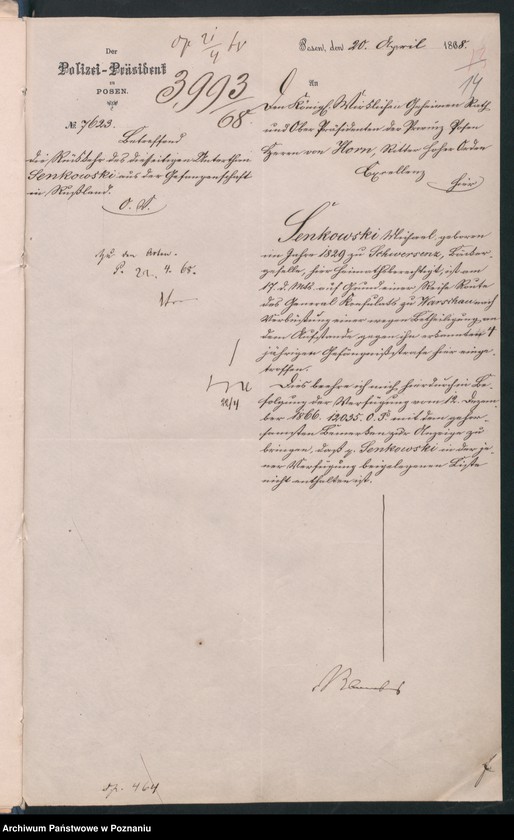 Der
Polizei-Präsident
in
POSEN.
№ 7623.
Betreffend
die Rückkehr des diesseitigen Unterthan
Senkowski aus der Gefangenschaft
in Rußland.
O. P.
pr 21/4 68
3993/68
Posen, den 20. April 1868.
14
An
den Königl. Wirklichen Geheimen Rath
und Ober Präsidenten der Provinz Posen
Herrn von Horn, Ritter hoher Orden
Excellenz
hier
zu den Acten.
P. 22. 4. 68.
22/4
Senkowski, Michael, geboren
im Jahre 1829 zu Schwersenz,
geselle, hier heimathsberechtigt, ist am
17. d. Mts. auf Grund einer Reise Route
des General Konsulats zu Warschau nach
Verbüßung einer wegen Betheiligung an
dem Aufstande gegen ihn erkannten 4
jährigen Gefängnißstrafe hier einge-
troffen.
Dies beehre ich mich, hierdurch in Be-
folgung der Verfügung vom 12. Dezem-
ber 1866. 12035. O. P. mit dem gehor-
samsten Bemerken zur Anzeige zu
bringen, daß p. Senkowski in der je-
ner Verfügung beigelegenen Liste
nicht enthalten ist.
Archiwum Państwowe w Poznaniu